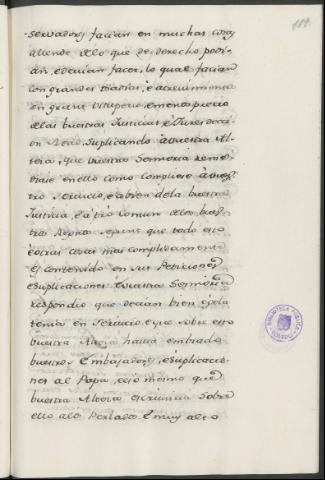 119.
servadores facian en muchas cosas
allende de lo que de derecho podi-
an, e devian facer, lo qual facian
con grandes osadias, e atrevimientos
en grant vituperio e menosprecio
de las vuestras Justicias e Juresdeci-
on Real. Suplicando a vuestra Al-
teza, que vuestra Señoria reme-
diase en ello como compliese a vues-
tro servicio, e a bien de la vuestra
Justicia, e a pro comun de los vues-
tros Regnos segunt que todo esto
e otras cosas mas complidamente
es contenido en sus Peticiones
e suplicaciones. E vuestra Señoria
respondio que decian bien e gelo
tenia en servicio. E que sobre esto
vuestra Alteza havia embiado
vuestros Embajadores, e suplicacio-
nes al Papa, e eso mismo que
vuestra Alteza escriviria sobre
ello a los Perlados. E muy alto
BIBLIOTECA PUBLICA
TOLEDO